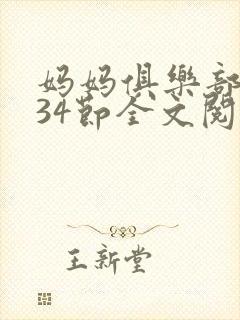 妈妈俱樂部
34節全文閱
王新堂